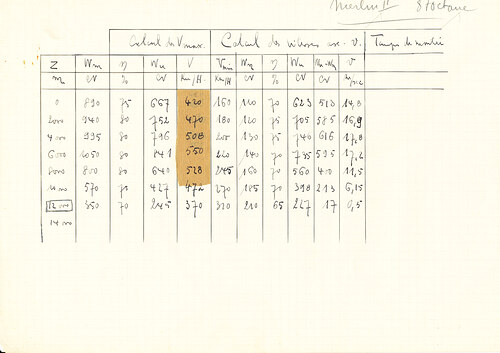 Merlin II 87 octane
Calcul des Vmax. Calcul des vitesses asc. V. Temps de montée
Z Wm η Wu V Vmin Wn η Wu Wu-Wn v
m CV % CV Km/H. Km/H CV % CV CV m/sec
0 890 75 667 420 160 110 70 623 513 14,3
2000 940 80 752 470 180 120 75 705 585 16,9
4000 995 80 796 508 200 130 75 746 616 17,8
6000 1050 80 841 550 220 140 70 735 595 17,2
8000 800 80 640 528 245 160 70 560 400 11,5
10000 570 75 427 472 270 185 70 398 213 6,15
12000 350 70 245 370 320 210 65 227 17 0,5
14000